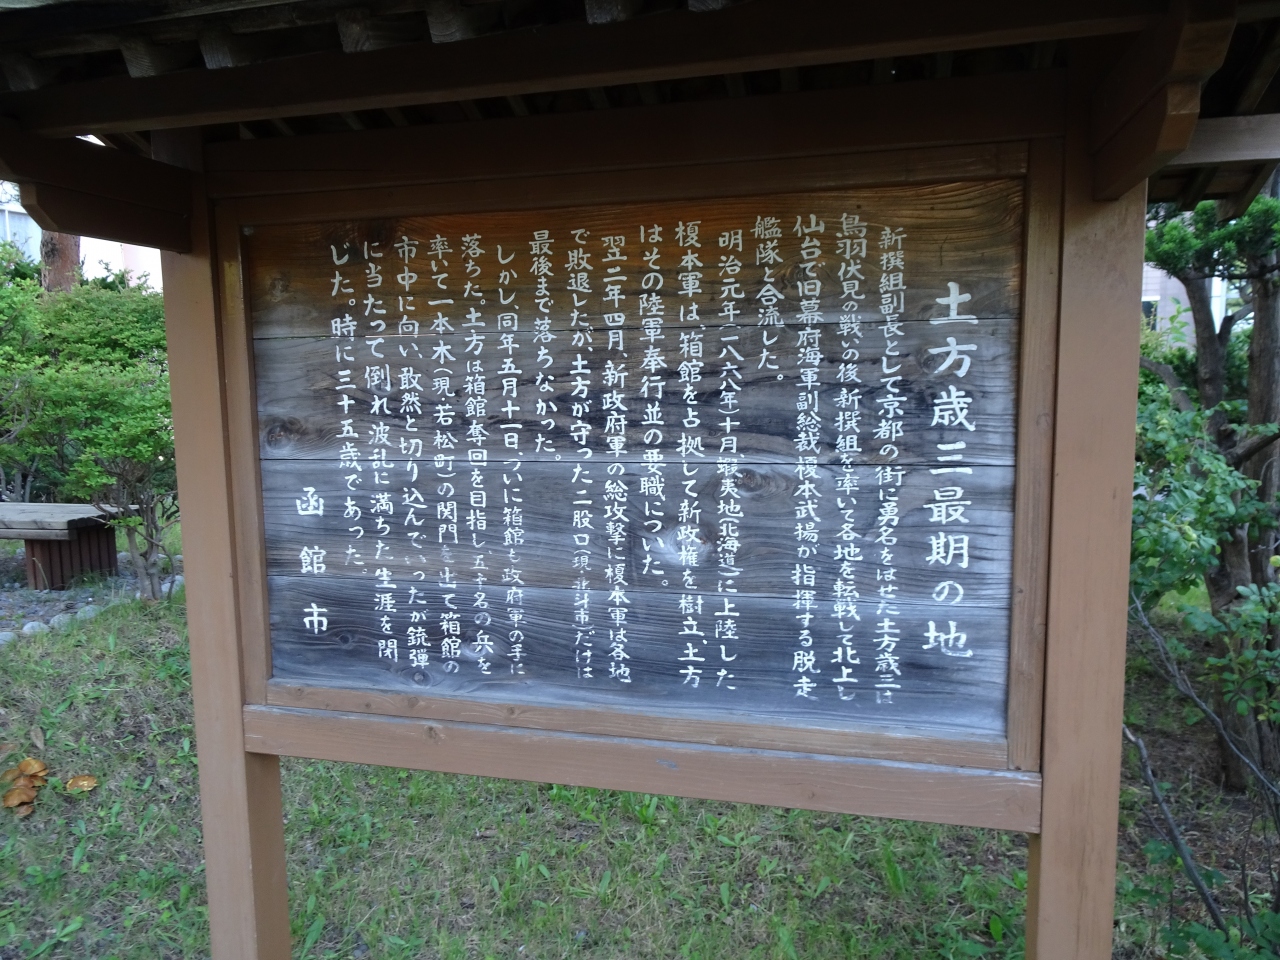 土方歳三最期の地
新撰組副長として京都の街に勇名をはせた土方歳三は
鳥羽伏見の戦いの後新撰組を率いて各地を転戦して北上し
仙台で旧幕府海軍副総裁榎本武揚が指揮する脱走
艦隊と合流した。
明治元年(一八六八年)十月、蝦夷地(北海道)に上陸した
榎本軍は、箱館を占拠して新政権を樹立、土方
はその陸軍奉行並の要職についた。
翌二年四月、新政府軍の総攻撃に榎本軍は各地
で敗退したが、土方が守った二股口(現北斗市)だけは
最後まで落ちなかった。
しかし、同年五月十一日、ついに箱館も政府軍の手に
落ちた。土方は箱館奪回を目指し、五十名の兵を
率いて一本木(現若松町)の関門を出て箱館の
市中に向い、敢然と切り込んでいったが銃弾
に当たって倒れ波乱に満ちた生涯を閉
じた。時に三十五歳であった。
函館市